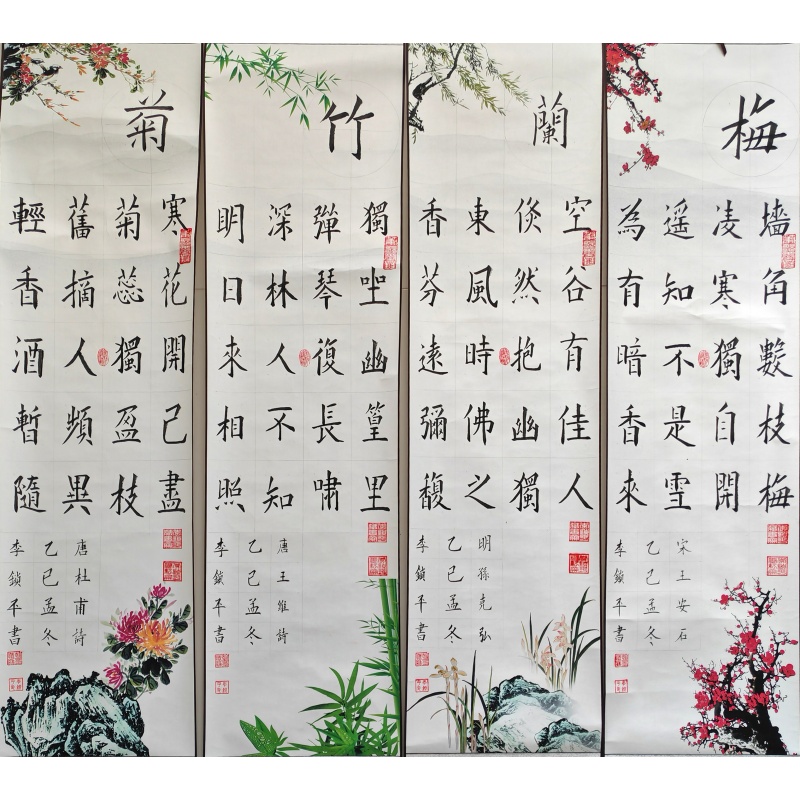 梅
墙角數枝梅
凌寒獨自開
遥知不是雪
為有暗香來
宋王安石
乙已孟冬
李鎖平書
蘭
空谷有佳人
倐然抱幽獨
東風時佛之
香芬遠彌馥
明孫克弘
乙已孟冬
李鎖平書
竹
獨坐幽篁里
彈琴復長嘯
深林人不知
明日來相照
唐王維詩
乙已孟冬
李鎖平書
菊
寒花開已盡
菊蕊獨盈枝
舊摘人頻異
輕香酒暫隨
唐杜甫詩
乙已孟冬
李鎖平書